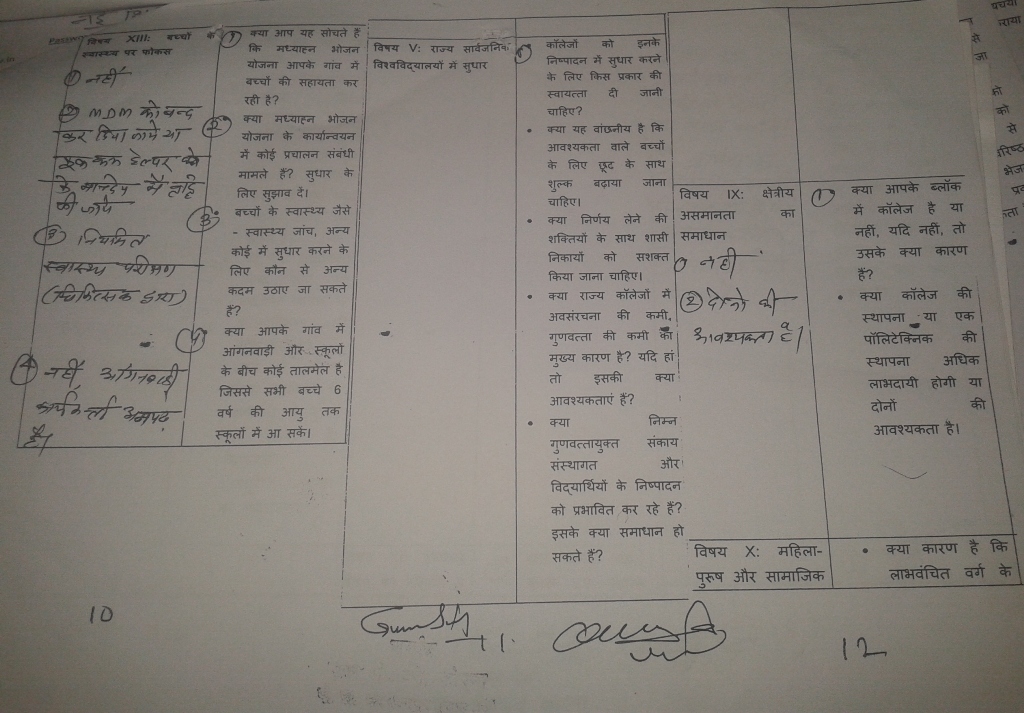 विषय XIII: बच्चों के
स्वास्थ्य पर फोकस
① नहीं
② M.D.M को बन्द
कर दिया जाये या
के मानदेय में
की जाये
③ नियमित
स्वास्थ्य परीक्षण
(चिकित्सक द्वारा)
④ नहीं, आंगनबाड़ी
कार्यकर्ता अनपढ़
है।
① क्या आप यह सोचते हैं
कि मध्याह्न भोजन
योजना आपके गांव में
बच्चों की सहायता कर
रही है?
② क्या मध्याह्न भोजन
योजना के कार्यान्वयन
में कोई प्रचालन संबंधी
मामले हैं? सुधार के
लिए सुझाव दें।
③ बच्चों के स्वास्थ्य जैसे
- स्वास्थ्य जांच, अन्य
कोई में सुधार करने के
लिए कौन से अन्य
कदम उठाए जा सकते
हैं?
④ क्या आपके गांव में
आंगनवाड़ी और स्कूलों
के बीच कोई तालमेल है
जिससे सभी बच्चे 6
वर्ष की आयु तक
स्कूलों में आ सकें।
10
विषय V: राज्य सार्वजनिक
विश्वविद्यालयों में सुधार
कॉलेजों को इनके
निष्पादन में सुधार करने
के लिए किस प्रकार की
स्वायत्ता दी जानी
चाहिए?
• क्या यह वांछनीय है कि
आवश्यकता वाले बच्चों
के लिए छूट के साथ
शुल्क बढ़ाया जाना
चाहिए।
• क्या निर्णय लेने की
शक्तियों के साथ शासी
निकायों को सशक्त
किया जाना चाहिए।
• क्या राज्य कॉलेजों में
अवसंरचना की कमी,
गुणवत्ता की कमी का
मुख्य कारण है? यदि हां
तो इसकी क्या
आवश्यकताएं हैं?
• क्या निम्न
गुणवत्तायुक्त संकाय
संस्थागत और
विद्यार्थियों के निष्पादन
को प्रभावित कर रहे हैं?
इसके क्या समाधान हो
सकते हैं?
11.
विषय IX: क्षेत्रीय
असमानता का
समाधान
① नहीं
② दोनों की
आवश्यकता है।
① क्या आपके ब्लॉक
में कॉलेज है या
नहीं, यदि नहीं, तो
उसके क्या कारण
हैं?
• क्या कॉलेज की
स्थापना या एक
पॉलिटेक्निक की
स्थापना अधिक
लाभदायी होगी या
दोनों की
आवश्यकता है।
विषय X: महिला-
पुरूष और सामाजिक
• क्या कारण है कि
लाभवंचित वर्ग के
12